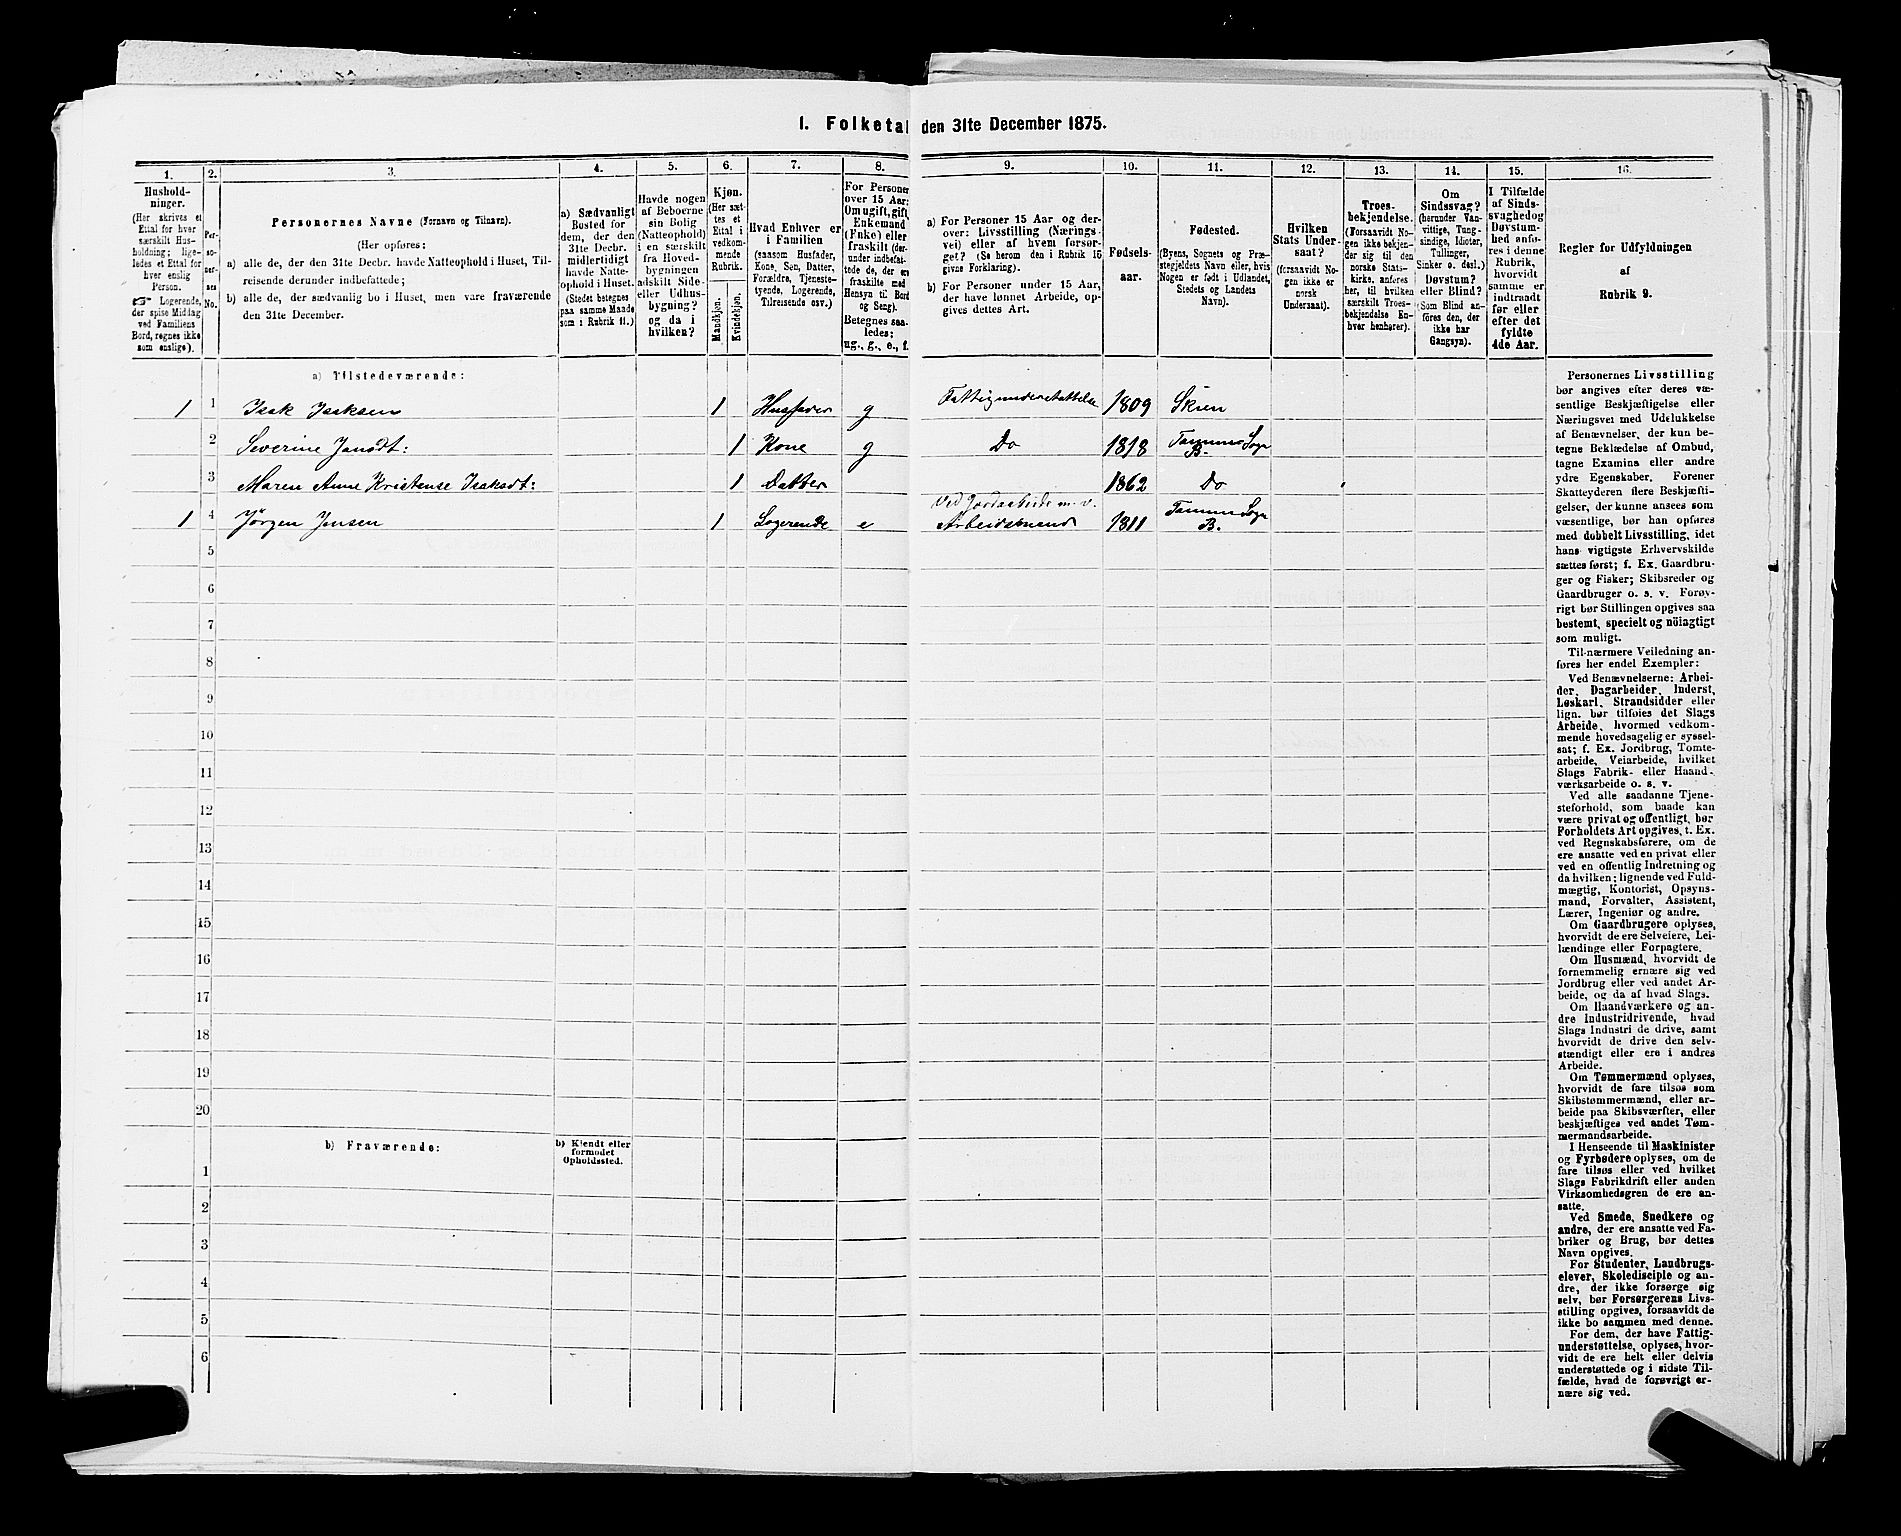 1. Folketal den 31te December 1875.
1.
Hushold-
ninger.
(Her skrives et
Ettal for hver
særskilt Hus-
holdning; lige-
ledes et Ettal for
hver enslig
Person.
☞ Logerende,
der spise Middag
ved Familiens
Bord, regnes ikke
som enslige).
2.
Per-
so-
ner-
nes
No.
3.
Personernes Navne (Fornavn og Tilnavn).
(Her opføres:
a) alle de, der den 31te Decbr. havde Natteophold i Huset, Til-
reisende derunder indbefattede;
b) alle de, der sædvanlig bo i Huset, men vare fraværende
den 31te December.
4.
a) Sædvanligt
Bosted for
dem, der den
31te Decbr.
midlertidigt
havde Natte-
ophold i Huset.
(Stedet betegnes
paa samme Maade
som i Rubrik 11.)
5.
Havde nogen
af Beboerne
sin Bolig
(Natteophold)
i en særskilt
fra Hoved-
bygningen
adskilt Side-
eller Udhus-
bygning?
og da i
hvilken?
6.
Kjøn.
(Her sæt-
tes et
Ettal i
vedkom-
mende
Rubrik.
Mandkjøn.
Kvindekjøn.
7.
Hvad Enhver er
i Familien
(saasom Husfader,
Kone, Søn, Datter,
Forældre, Tjeneste-
tyende, Logerende,
Tilreisende osv.)
8.
For Personer
over 15 Aar:
Om ugift, gift,
Enkemand
(Enke) eller
fraskilt (der-
under indbefat-
tede de, der er
fraskilte med
Hensyn til Bord
og Seng).
Betegnes saa-
ledes:
ug., g., e., f.
9.
a) For Personer 15 Aar og der-
over: Livsstilling (Nærings-
vei) eller af hvem forsør-
get? (Se herom den i Rubrik 16
givne Forklaring).
b) For Personer under 15 Aar,
der have lønnet Arbeide, op-
gives dettes Art.
10.
Fødsels-
aar.
11.
Fødested.
(Byens, Sognets og Præ-
stegjeldets Navn eller, hvis
Nogen er født i Udlandet,
Stedets og Landets
Navn).
12.
Hvilken
Stats Under-
saat?
(forsaavidt No-
gen ikke er
norsk
Undersaat).
13.
Troes-
bekjendelse.
(Forsaavidt No-
gen ikke bekjen-
der sig til den
norske Stats-
kirke, anføres
her, til hvilken
særskilt Troes-
bekjendelse En-
hver henhører).
14.
Om
Sindssvag?
(herunder Van-
vittige, Tung-
sindige, Idioter,
Tullinger,
Sinker o. desl.)
Døvstum?
eller Blind?
(Som Blind an-
føres den, der
ikke har
Gangsyn).
15.
I Tilfælde
af Sinds-
svaghed og
Døvstum-
hed anfø-
res i denne
Rubrik,
hvorvidt
samme er
indtraadt
før eller
efter det
fyldte
4de Aar.
16.
Regler for Udfyldningen
af
Rubrik 9.
a) Tilstedeværende:
1 1 Isak Isaksen 1 Husfader g Fattigunderstøttelse 1809 Skien
2 Severine Jansdt: 1 Kone g Do 1818 Sogn B.
3 Maren Anne Kristense Isaksdt: 1 Datter 1862 Do
1 4 Jørgen Jensen 1 Logerende e Ved Jordarbeide m. v. Arbeidsmand 1811 Sogn B.
5
6
7
8
9
10
11
12
13
14
15
16
17
18
19
20
b) Fraværende:
b) Kjendt eller
formodet
Opholdssted.
1
2
3
4
5
6
Personernes Livsstilling
bør angives efter deres væ-
sentlige Beskjæftigelse eller
Næringsvei med Udelukkelse
af Benævnelser, der kun be-
tegne Beklædelse af Ombud,
tagne Examina eller andre
ydre Egenskaber. Forener
Skatteyderen flere Beskjæfti-
gelser, der kunne ansees som
væsentlige, bør han opføres
med dobbelt Livsstilling, idet
hans vigtigste Erhvervskilde
sættes først; f. Ex. Gaardbru-
ger og Fisker; Skibsreder og
Gaardbruger o. s. v. Forøv-
rigt bør Stillingen opgives saa
bestemt, specielt og nöiagtigt
som muligt.
Til nærmere Veiledning an-
føres her endel Exempler:
Ved Benævnelserne: Arbei-
der, Dagarbeider, Inderst,
Løskarl, Strandsidder eller
lign. bør tilføies det Slags
Arbeide, hvormed vedkom-
mende hovedsagelig er syssel-
sat; f. Ex. Jordbrug, Tomte-
arbeide, Veiarbeide, hvilket
Slags Fabrik- eller Haand-
værksarbeide o. s. v.
Ved alle saadanne Tjene-
steforhold, som baade kan
være privat og offentligt, bør
Forholdets Art opgives, t. Ex.
ved Regnskabsførere, om de
ere ansatte ved en privat eller
ved en offentlig Indretning og
da hvilken; lignende ved Fuld-
mægtig, Kontorist, Opsyns-
mand, Forvalter, Assistent,
Lærer, Ingeniør og andre.
Om Gaardbrugere oplyses,
hvorvidt de ere Selveiere, Lei-
lændinge eller Forpagtere.
Om Husmænd, hvorvidt de
fornemmelig ernære sig ved
Jordbrug eller ved andet Ar-
beide, og da af hvad Slags.
Om Haandværkere og an-
dre Industridrivende, hvad
Slags Industri de drive, samt
hvorvidt de drive den selv-
stændigt eller ere i andres
Arbeide.
Om Tømmermænd oplyses,
hvorvidt de fare tilsøs som
Skibstømmermænd, eller ar-
beide paa Skibsværfter, eller
beskjæftiges ved andet Tøm-
mermandsarbeide.
I Henseende til Maskinister
og Fyrbødere oplyses, om de
fare tilsøs eller ved hvilket
Slags Fabrikdrift eller anden
Virksomhedsgren de ere an-
satte.
Ved Smede, Snedkere og
andre, der ere ansatte ved Fa-
briker og Brug, bør dettes
Navn opgives.
For Studenter, Landbrugs-
elever, Skoledisciple og an-
dre, der ikke forsørge sig
selv, bør Forsørgerens Livs-
stilling opgives, forsaavidt de
ikke bo sammen med denne.
For dem, der have Fattig-
understøttelse, oplyses, hvor-
vidt de ere helt eller delvis
understøttede og i sidste Til-
fælde, hvad de forøvrigt er-
nære sig ved.